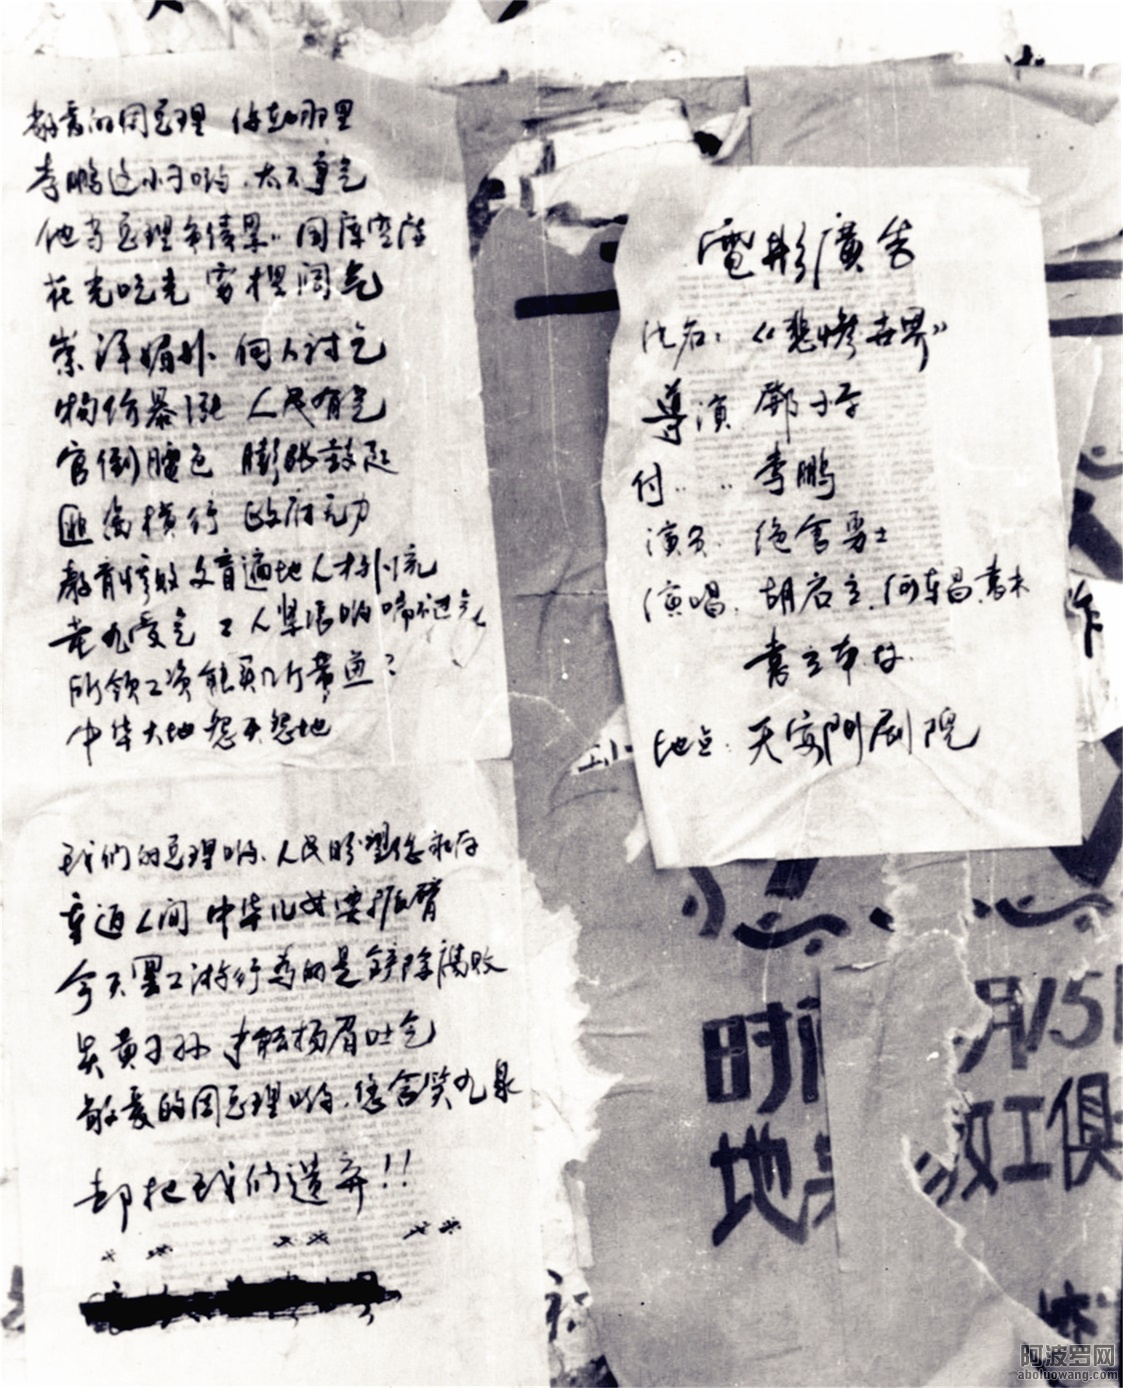 敬爱的周总理 你在哪里
李鹏这小子哟，太不争气
他当总理 国库空虚
花光吃光 穷摆阔气
崇洋媚外 向人讨乞
物价暴涨 人民有气
官倒脸色 膨胀鼓起
匪盗横行 政府无力
教育惨败 文盲遍地 人材外流
老九受气 工人紧张哟 喘不过气
所领工资能买几斤带鱼？
中华大地 怨天怨地
我们的总理哟，人民盼望您永存
重返人间 中华儿女要振臂
今天罢工游行为的是铲除腐败
炎黄子孙 才能扬眉吐气
敬爱的周总理哟，您含笑九泉
却把我们遗弃！！
電影廣告
片名：《悲惨世界》
导演 鄧小平
付‥‥ 李鹏
演员 绝食勇士
演唱 何东昌
地点：天安門剧院
时
地
月15
教工俱
阿波罗网
aboluowang.com